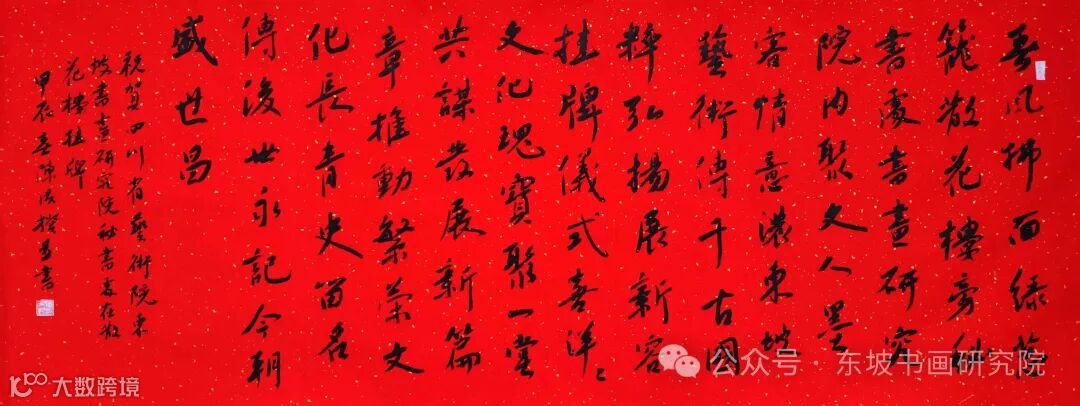 春风拂面绿荫
籠散花樓旁秘
書處書畫研究
院内聚文人墨
客情意濃東坡
藝術傳千古國
粹弘揚展新容
挂牌儀式喜洋〻
文化瑰寶聚一堂
共謀發展新篇
章推動繁荣文
化長青史留名
傳後世永記今朝
盛世昌
祝賀四川省藝術院東
坡書畫研究院秘書處在散
花樓挂牌
甲辰春陳撰書
公众号·东坡书画研究院
10100 大数跨境